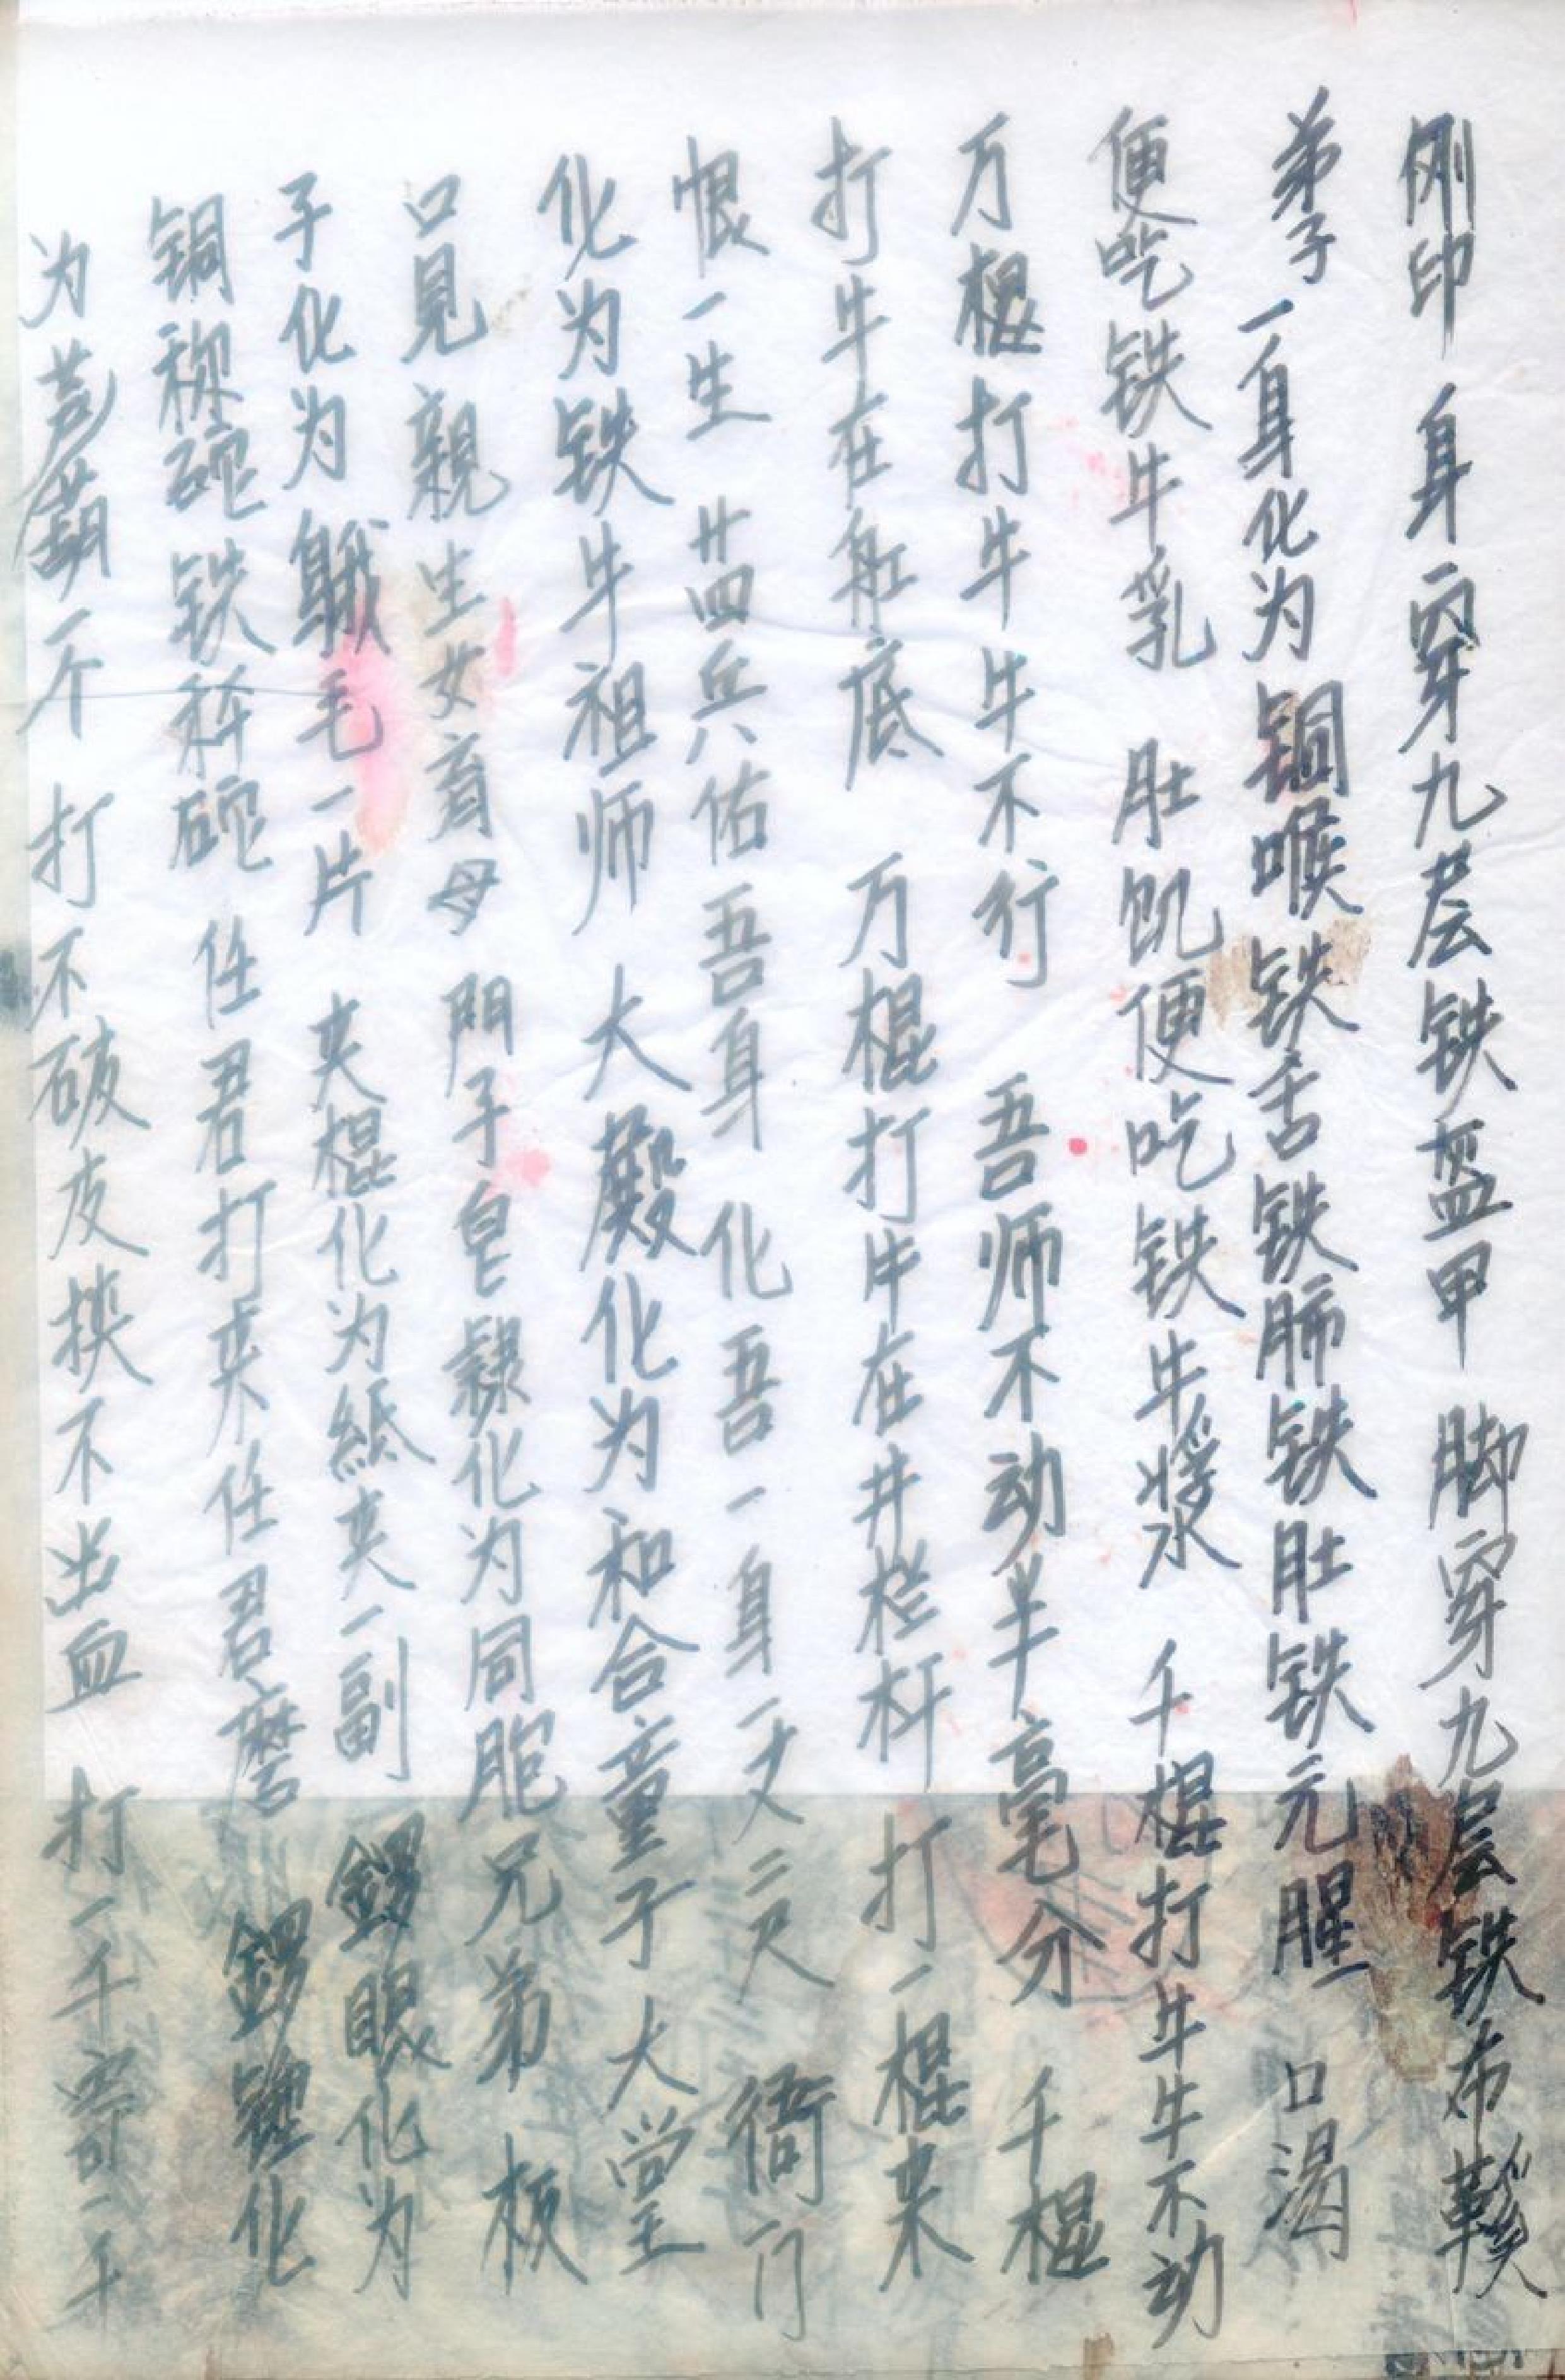 刚印 身穿九层铁盔甲 脚穿九层铁布鞋
弟子一身化为铜喉铁舌铁肺铁肚铁元腥 口渴
便吃铁牛乳 肚饥便吃铁牛浆 千棍打牛牛不动
万棍打牛牛不行 吾师不动半毫分 千棍
打牛在缸底 万棍打牛在井栏杆 打一棍来
恨一生 廿四兵佑吾身 化吾一身一丈二尺 衙门
化为铁牛祖师 大殿化为和合童子 大堂
口见親生女育母 門子皂隸化为同胞兄弟 板
子化为鹅毛一片 夹棍化为紙夹一副 鑼眼化为
铜秤砣铁秤砣 任君打来任君磨 鑼锤化
为葫芦一个 打不破皮揆不出血 打一千寄一千